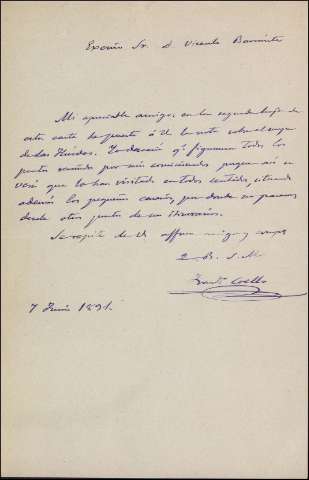 Excmo Sr. D Vicente Barrantes
Mi apreciable amigo: en la segunda hoja de
esta carta he puesto á V. la nota sobre el mapa
de las Hurdes. Yo deseo q.e figuraran todos los
puntos reunidos por mis comisionados porque así se
verá que lo han visitado en todos sentidos, situando
además los pequeños caseríos, por donde no pasaron
desde otros puntos de su itinerario.
Se repite de V. affmo amigo y comp.o
Q. B. S. M.
Fran.co Coello
7 Junio 1891.